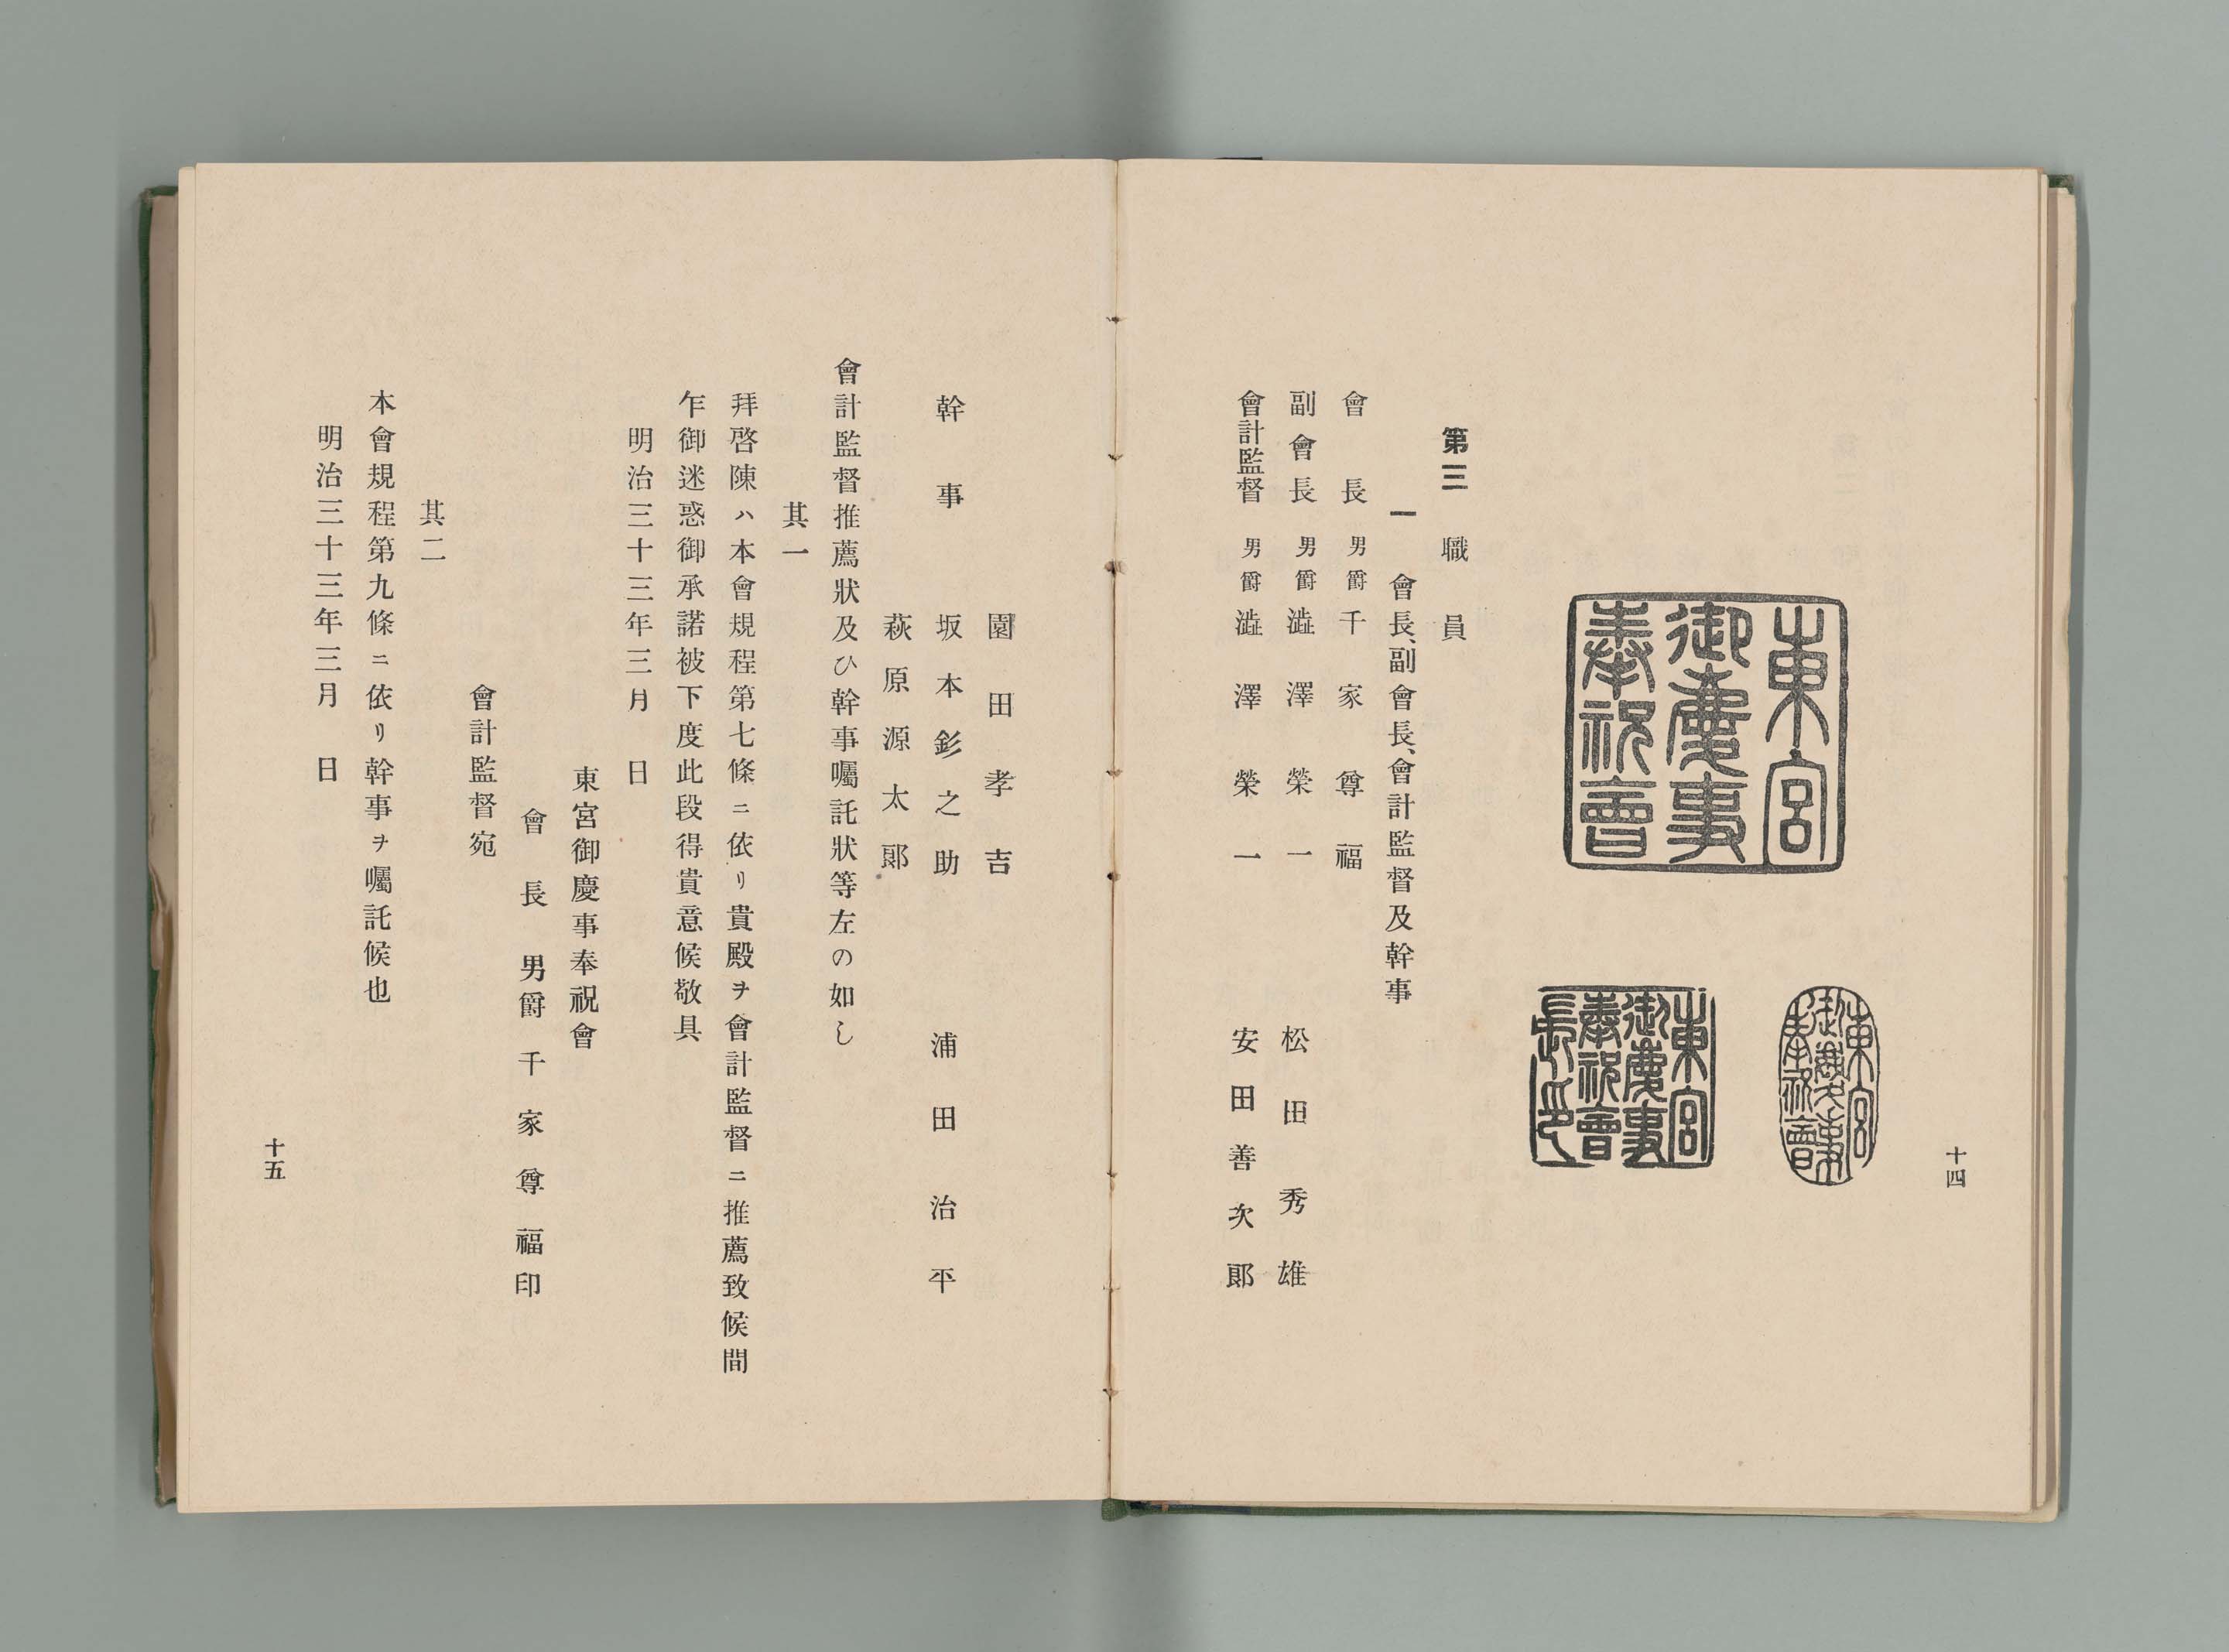 十四
東宮
御慶事
奉祝會
東宮
御慶事
奉祝會
東宮
御慶事
奉祝會
長之印
第三　職員
一　會長、副會長、會計監督及幹事
會長　男爵　千家尊福
副會長　男爵　澁澤榮一　松田秀雄
會計監督　男爵　澁澤榮一　安田善次郞
園田孝吉
幹事　坂本釤之助　浦田治平
萩原源太郞
會計監督推薦狀及ひ幹事囑託狀等左の如し
其一
拜啓陳ハ本會規程第七條ニ依リ貴殿ヲ會計監督ニ推薦致候間
乍御迷惑御承諾被下度此段得貴意候敬具
明治三十三年三月　日
東宮御慶事奉祝會
會長　男爵　千家尊福印
會計監督宛
其二
本會規程第九條ニ依リ幹事ヲ囑託候也
明治三十三年三月　日
十五